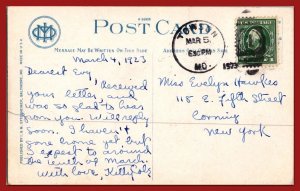 POST CARD
MESSAGE MAY BE WRITTEN ON THIS SIDE
MAR 5
6:30 PM
MO.
1923
March 4, 1923
Dear Evy,
Received
your letter, and
was so glad to hear
from you. Will reply
soon. I haven't
gone home yet but
I expect to around
the tenth of March.
With love,
Miss Evelyn Hawkes
118 E. Fifth Street
Corning
New York